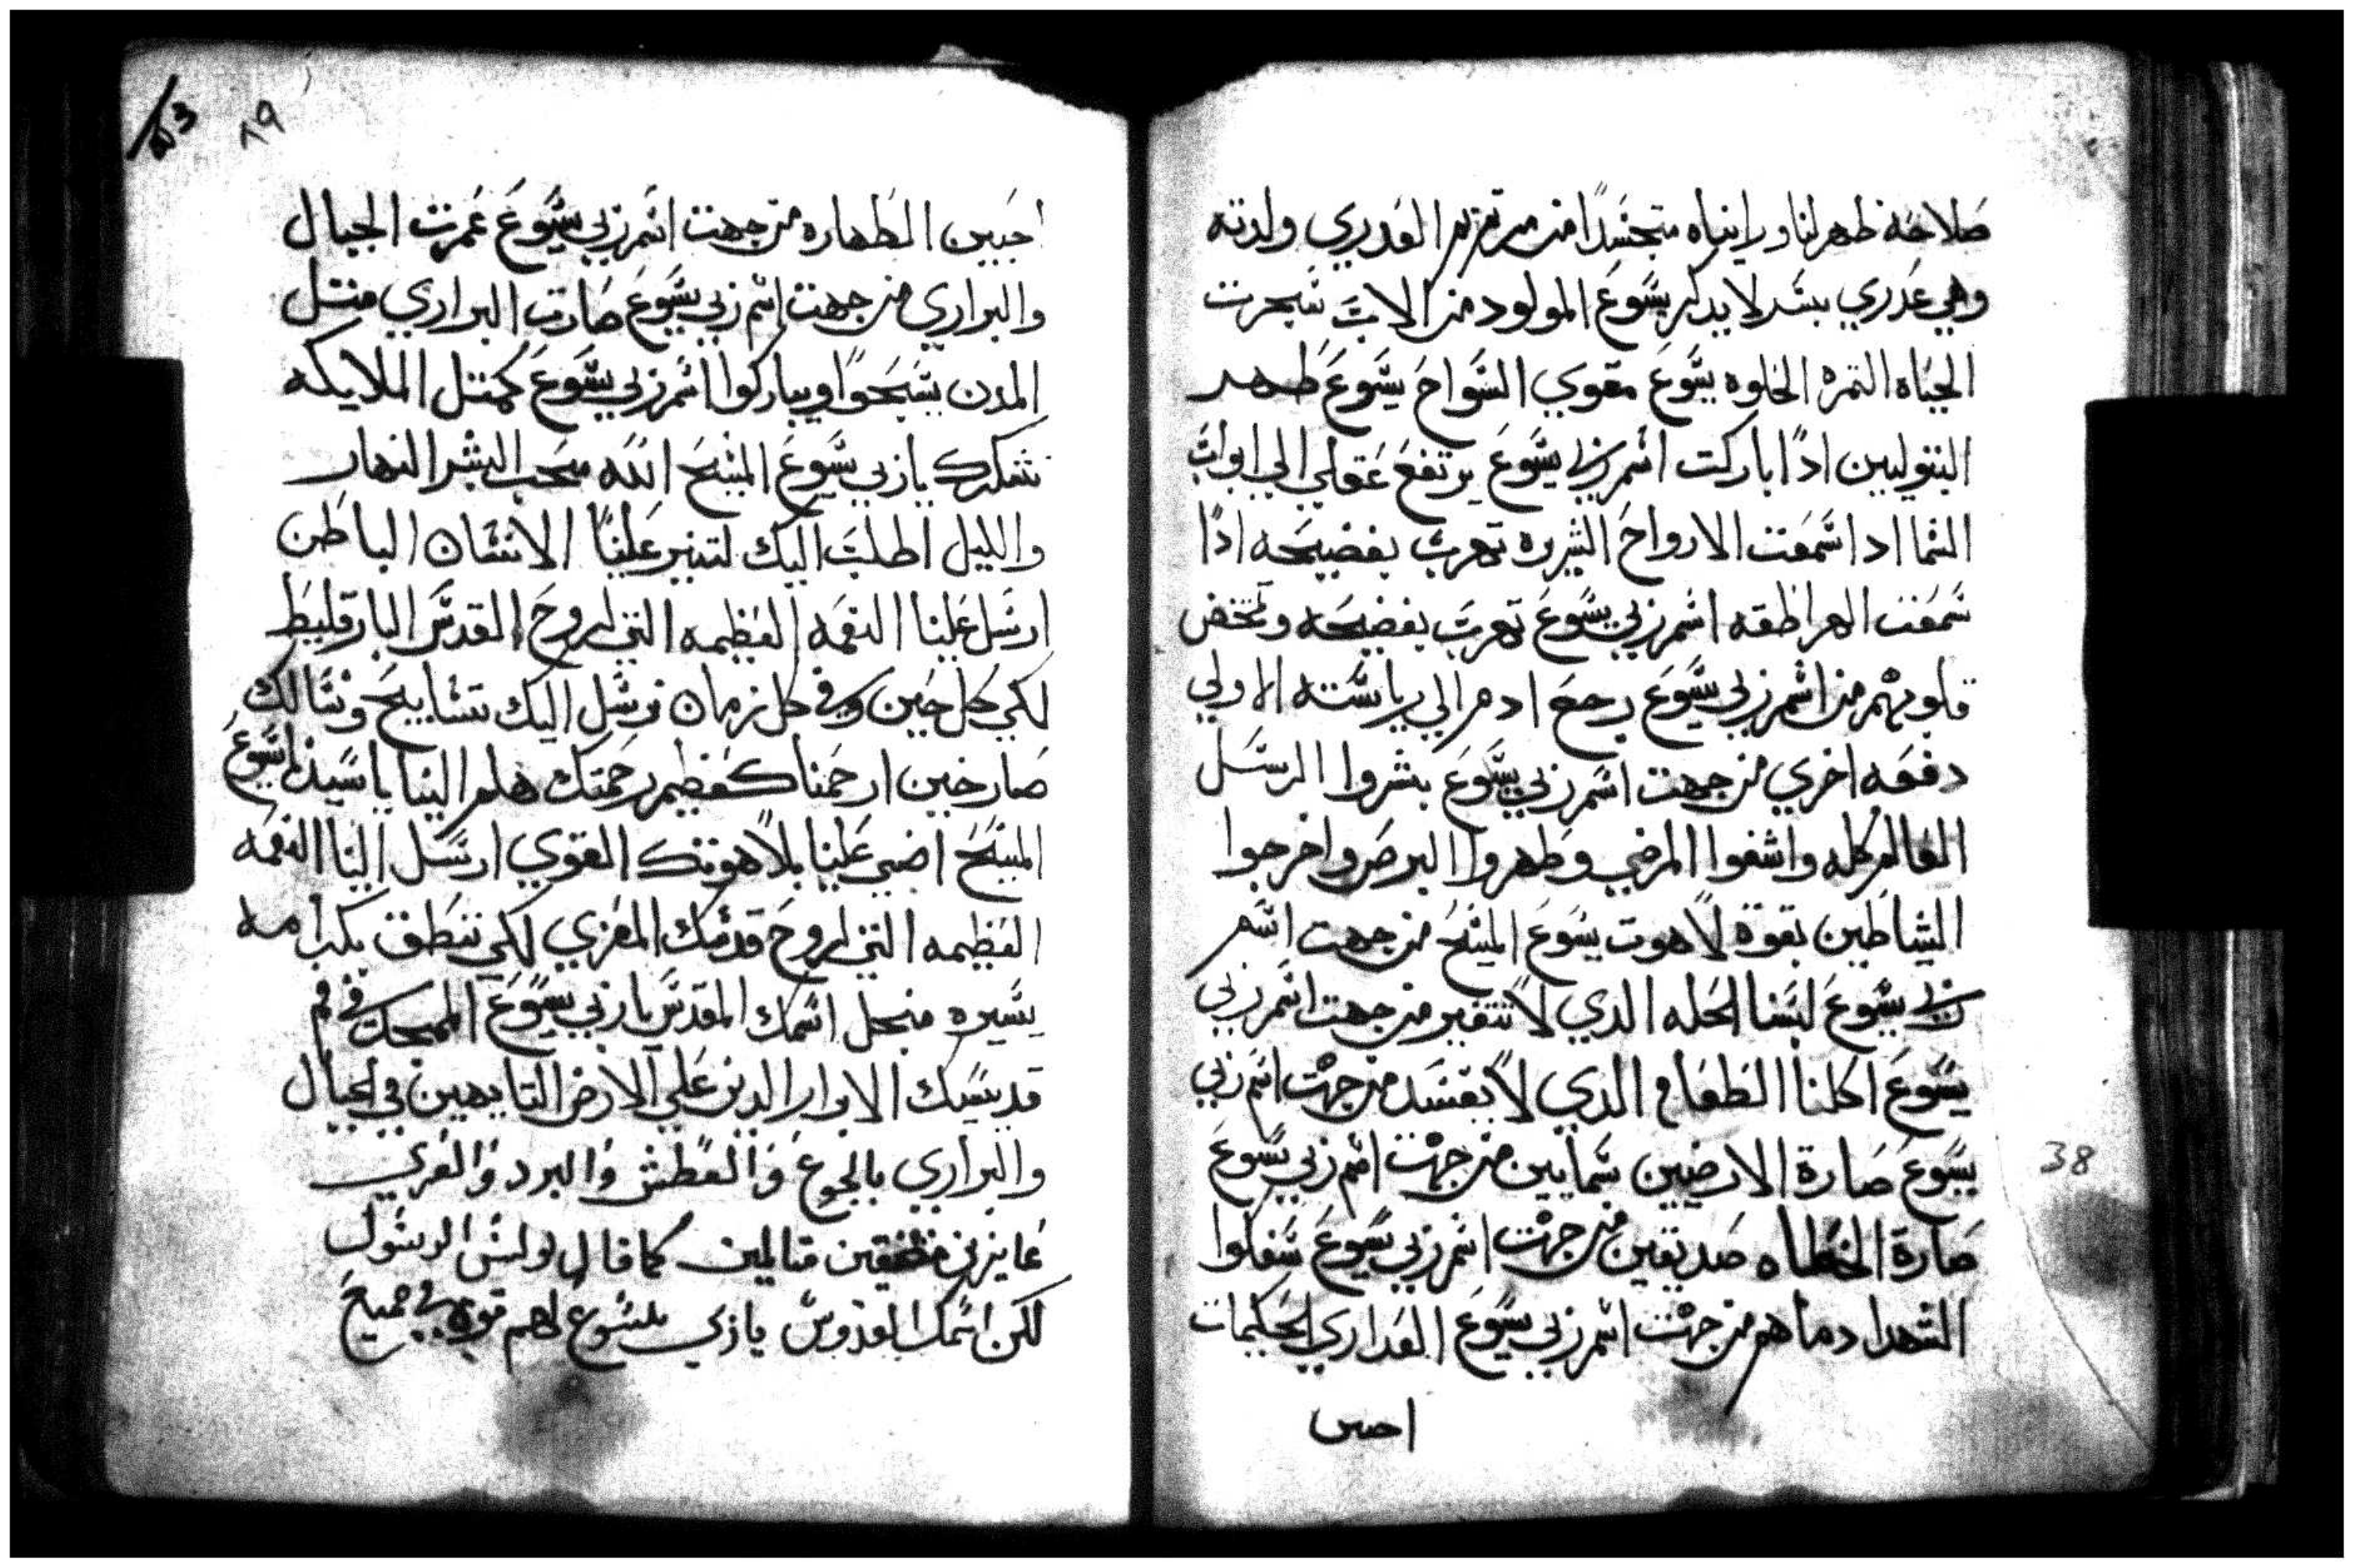 صلاحه ظهر لنا وراينياه متجسدا من مرتمريم العدري ولدته
وهي عدري بسر لا يدكر يسوع المولود من الاب شجرت
الحياه التمره الحلوه يسوع مقوي السواح يسوع طهر
البتوليين ادا باركت اسم ربي يسوع يرتفع عقلي الي ابواب
السما اد اسمعت الارواح الشريره تهرب بفضيحه ادا
سمعت الهراطقه اسم ربي يسوع تهرب بفضيحه وتخض
قلوبهم من اسم ربي يسوع رجع ادم الي رياسته الاولي
دفعه اخري من جهت اسم ربي يسوع بشروا الرسل
العالم كله واشفوا المرضي وطهروا البرص واخرجوا
الشياطين بقوة لاهوت يسوع المسيح من جهت اسم
ربي يسوع لبسنا الحله الدي لا تتغير من جهت اسم ربي
يسوع اكلنا الطعام الدي لا يفسد من جهت اسم ربي
يسوع صارة الارضيين سمايين من جهت اسم ربي يسوع
صارة الخطاه صديقين من جهت اسم ربي يسوع سفكوا
الشهدا دماهم من جهت اسم ربي يسوع العداري الحكيمات
احبين
38
٨٩
احبين الطهاره من جهت اسم ربي يسوع عمرت الجبال
والبراري من جهت اسم ربي يسوع صارت البراري متل
المدن يسبحوا ويباركوا اسم ربي يسوع كمتل الملايكه
نشكرك يا ربي يسوع المسيح الله محب البشر النهار
والليل اطلب اليك لتنير علينا الانسان الباطن
ارسل علينا النعمه العظيمه التي لروح القدس البارقليط
لكي كل حين وفي كل زمان نرسل اليك تسابيح ونسالك
صارخين ارحمنا كعظيم رحمتك هلم الينا يا سيدنا يسوع
المسيح اضي علينا بلاهوتك القوي ارسل الينا النعمه
العظيمه التي لروح قدسك المعزي لكي ننطق بكرامه
يسيره منجل اسمك المقدس يا ربي يسوع الممجد في فم
قديسيك الابرار الدين علي الارض التايهين في الجبال
والبراري بالجوع والعطش والبرد والعري
عايزين متضيقين متالمين كما قال بولس الرسول
لكن اسمك القدوس يا ربي يسوع لهم قوه في جميع